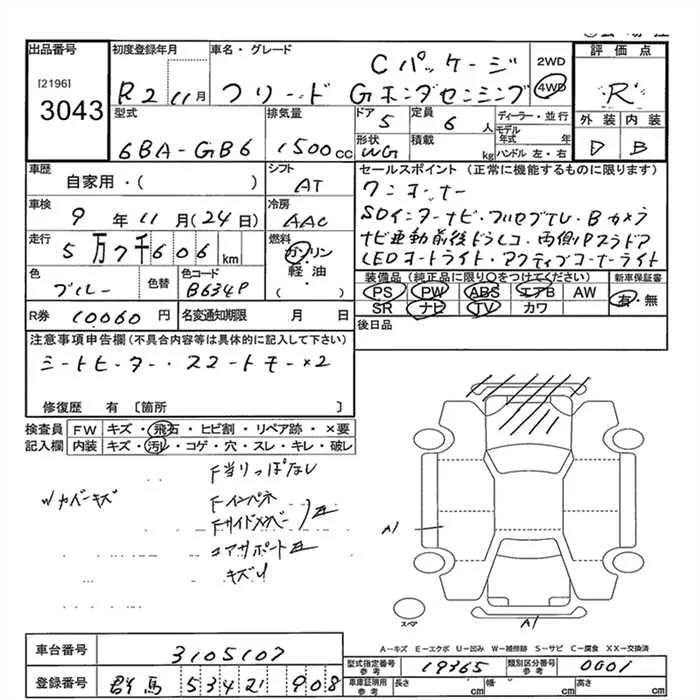 出品番号
[2196]
3043
初度登録年月
R2 11月
車名・グレード
Cパッケージ
フリード Gホンダセンシング
2WD
4WD
評価点
R
外装 内装
D B
型式
6BA-GB6
排気量
1500cc
ドア
5
定員
6人
形状
WG
積載
kg
ディーラー・並行
モデル年式 年
ハンドル 左・右
車歴
自家用・( )
シフト
AT
車検
9年11月(24日)
冷房
AAC
走行
5万7千606km
燃料
ガソリン
軽油
( )
色
ブルー
色替
色コード
B634P
R券
10060円
名変通知期限 月 日
セールスポイント(正常に機能するものに限ります)
ワンオーナー
SDインターナビ・フルセグTV・Bカメラ
ナビ連動前後ドラレコ・両側Pスラドア
LEDオートライト・アクティブコーナーライト
装備品(純正品に限り○をつけてください)
PS PW ABS エアB AW
SR ナビ TV カワ
新車保証書
有・無
後日品
注意事項申告欄(不具合内容等は具体的に記入して下さい)
シートヒーター・スマートキー×2
修復歴 有〔箇所 〕
検査員記入欄
FW キズ・飛石・ヒビ割・リペア跡・×要
内装 キズ・汚レ・コゲ・穴・スレ・キレ・破レ
F当りっぱなし
Wカバーキズ
Fインパネ
Fサイドメンバー
コアサポート
キズ
A1
A1
スマ
A-キズ E-エクボ U-凹み W-補修跡 S-サビ C-腐食 XX-交換済
車台番号
3105107
登録番号
群馬 534 21 908
型式指定番号 参考
19365
類別区分番号 参考
0001
車庫証明用 参考
長さ cm
幅 cm
高さ cm